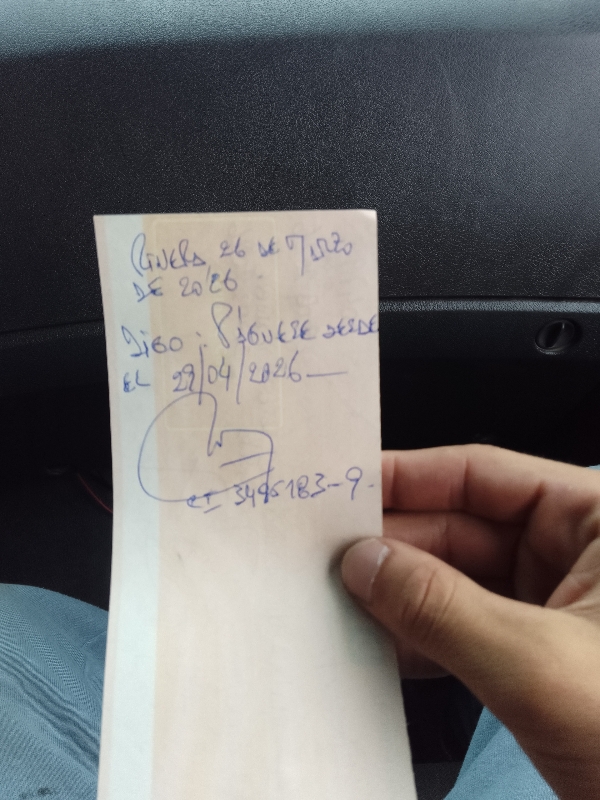 RIVERA 26 DE MARZO
DE 2026
DIGO : PÁGUESE DESDE
EL 29/04/2026—
CI 3495183-9.